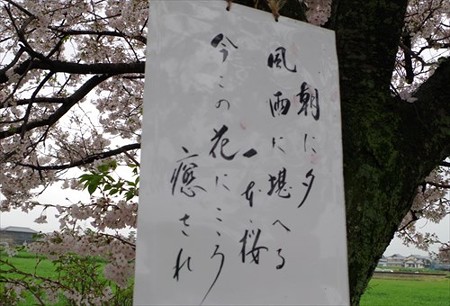 朝に夕
風雨に堪へる
一本桜
今この花にこころ
癒され